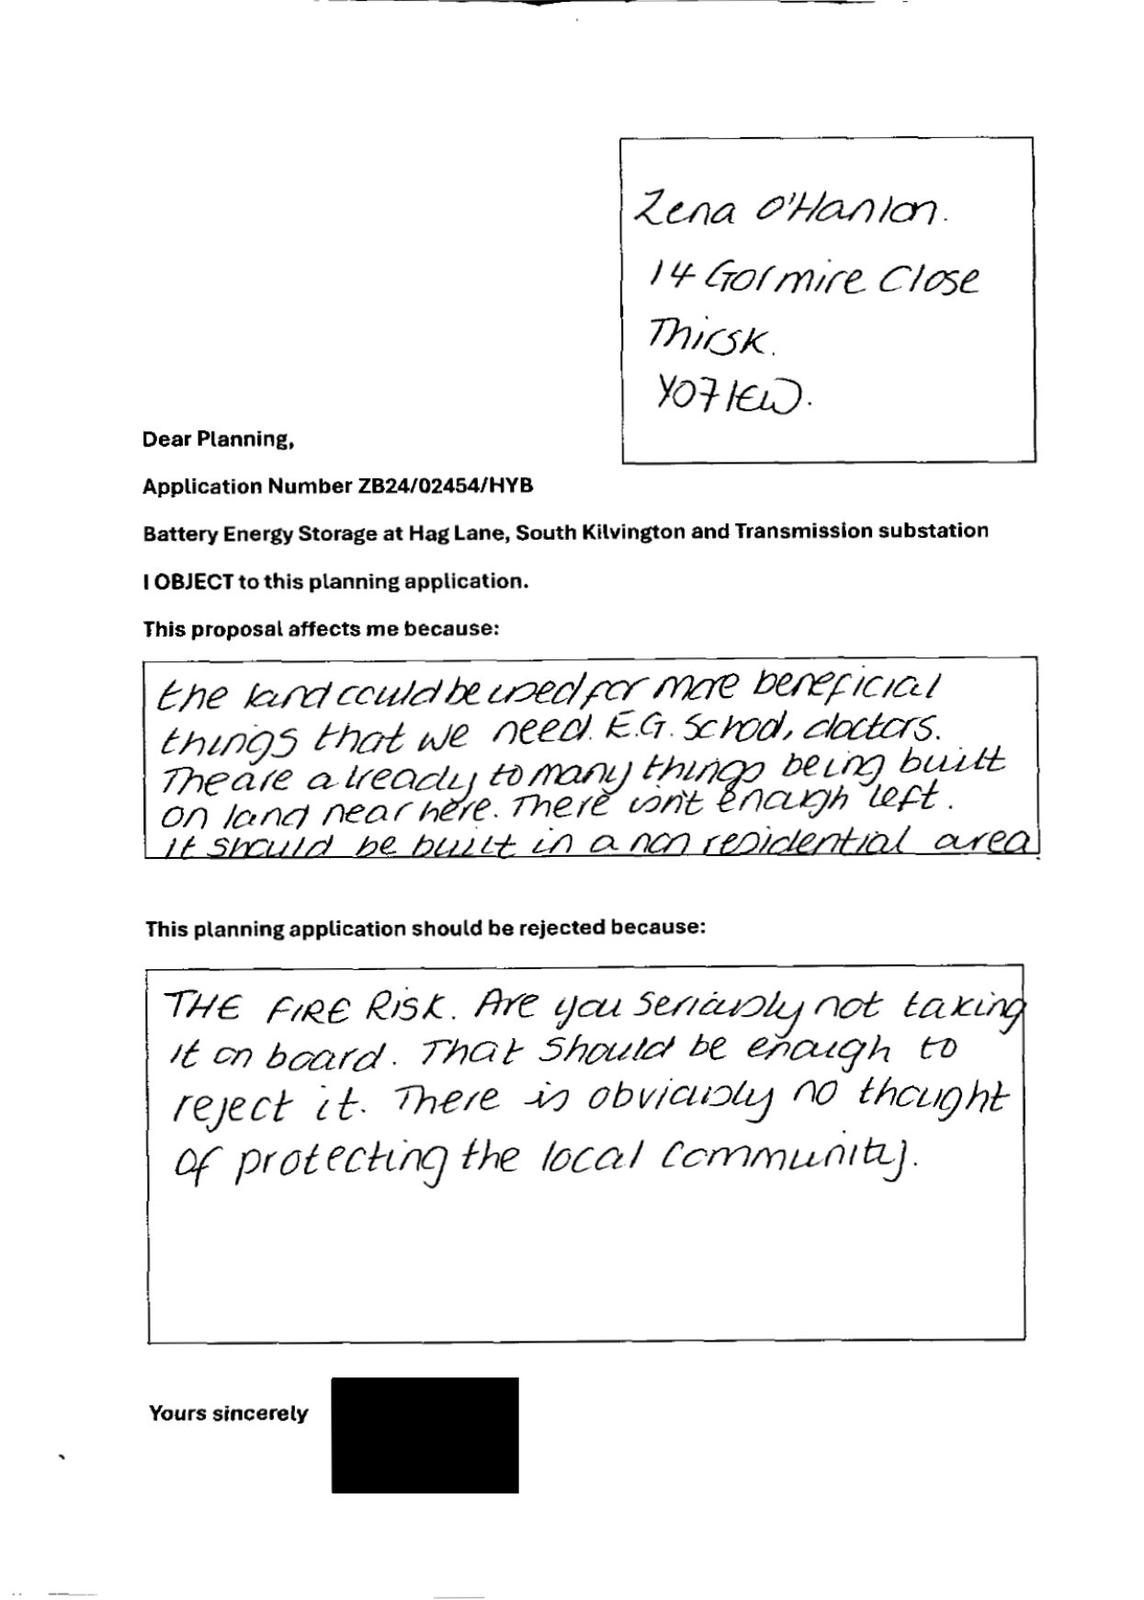 Zena O'Hanlon.
14 Gormire Close
Thirsk.
YO7 1EW.
Dear Planning,
Application Number ZB24/02454/HYB
Battery Energy Storage at Hag Lane, South Kilvington and Transmission substation
I OBJECT to this planning application.
This proposal affects me because:
the land could be used for more beneficial
things that we need. E.G. School, doctors.
Theare already to many things being built
on land near here. There isn't enough left.
it should be built in a non residential area.
This planning application should be rejected because:
THE FIRE RISK. Are you seriously not taking
it on board. That should be enough to
reject it. There is obviously no thought
of protecting the local community.
Yours sincerely